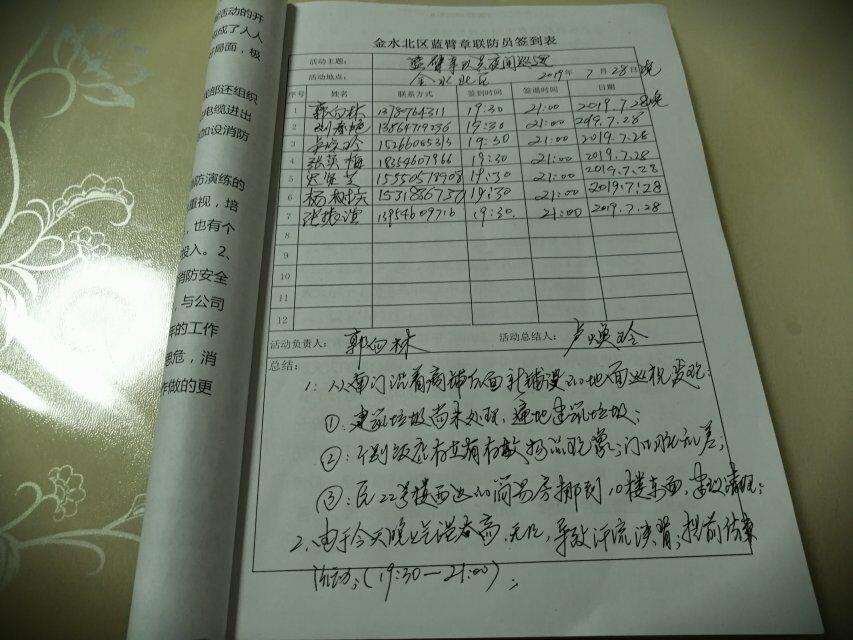 活动的开
成了人人
局面，极
部还组织
电缆进出
加设消防
防演练的
重视，培
，也有个
投入。2、
消防安全
与公司
年的工作
思危，消
作做的更
金水北区蓝臂章联防员签到表
活动主题： 蓝臂章队员夜间巡逻
活动地点： 金水北区 2019年7月28日晚
序号 姓名 联系方式 签到时间 签退时间 日期
1 郭向林 1378764311 19:30 21:00 2019.7.28晚
2 13864719236 19:30 21:00 2019.7.28
3 15266085313 19:30 21:00 2019.7.28
4 张英梅 18354607966 19:30 21:00 2019.7.28
5 15550578908 19:30 21:00 2019.7.28
6 杨树庆 1531836737 19:30 21:00 2019.7.28
7 张振滨 13954609716 19:30 21:00 2019.7.28
8
9
10
11
12
活动负责人： 郭向林 活动总结人： 卢焕玲
总结：
1：从南门沿着商铺后面新铺设的地面巡视发现：
①：建筑垃圾尚未处理，遍地建筑垃圾；
②：个别饭店存在着存散物品现象；门口脏乱差；
③：瓦22号楼西边的简易房挪到10楼东面，建议清理；
2、由于今天晚上气温春高，无风，导致汗流浃背；提前结束
活动；(19:30—21:00)；